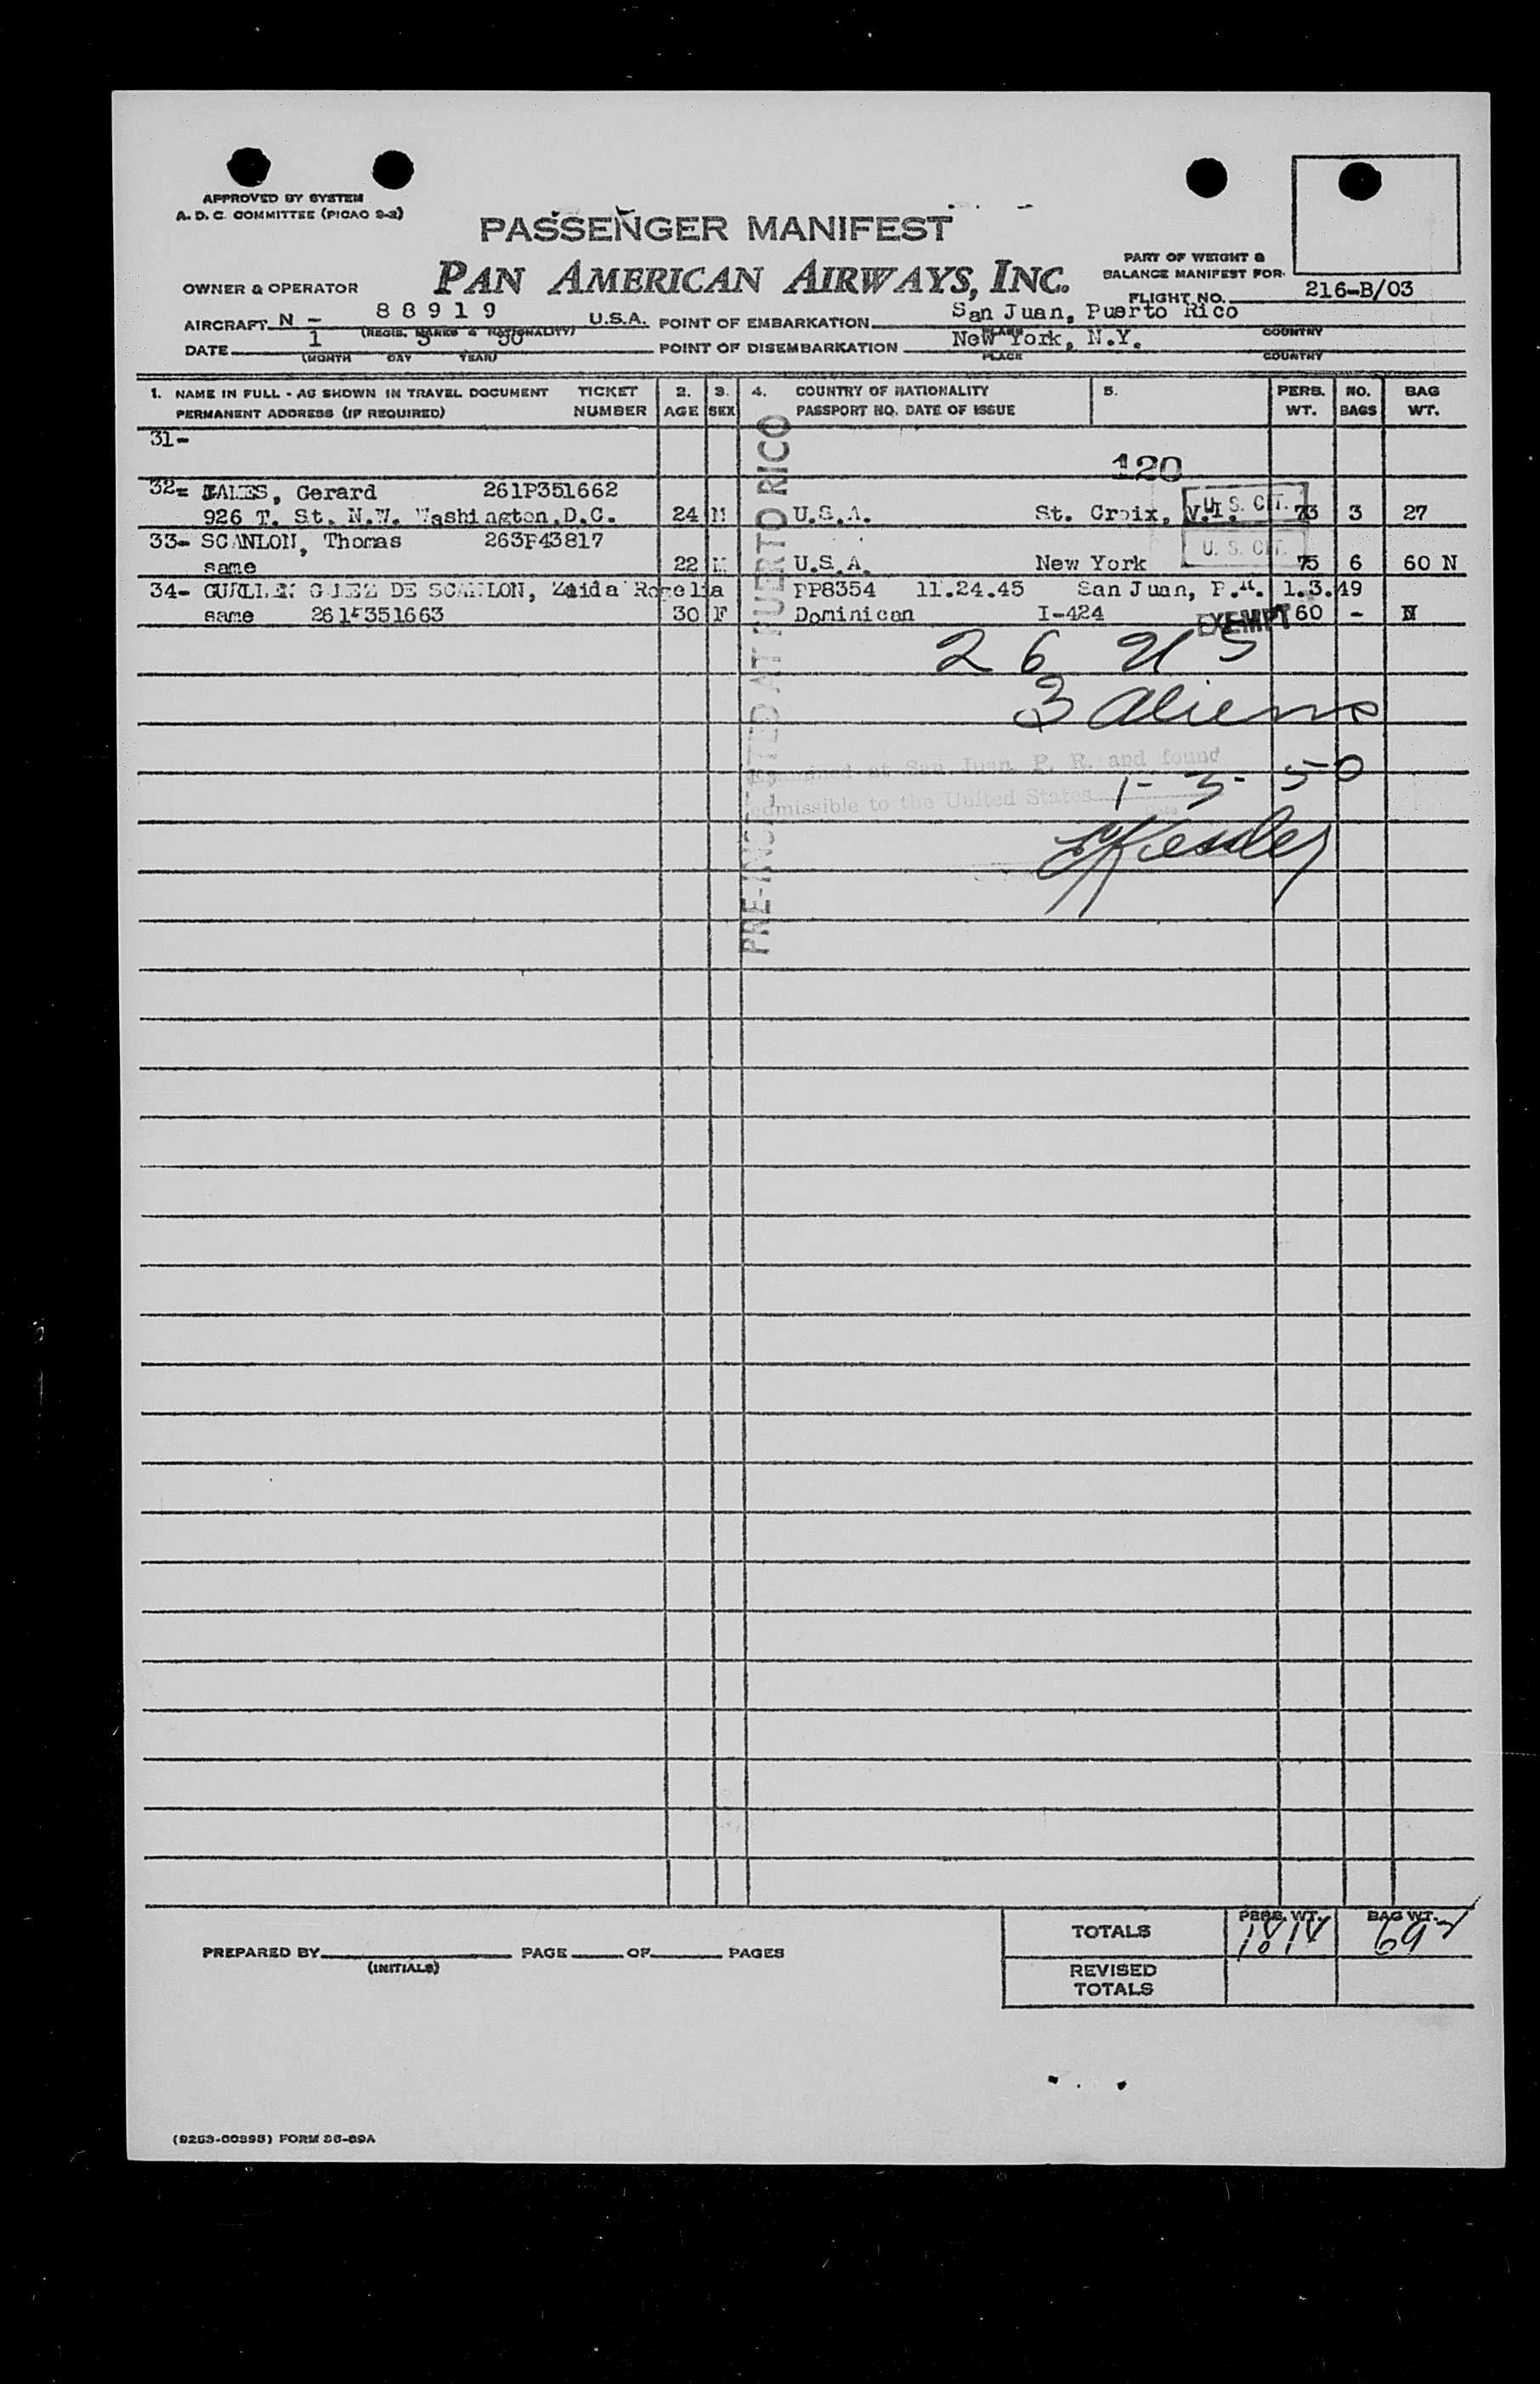 APPROVED BY SYSTEM
A. D. C. COMMITTEE (PICAO 9-2)
PASSENGER MANIFEST
PAN AMERICAN AIRWAYS, INC.
OWNER & OPERATOR
PART OF WEIGHT &
BALANCE MANIFEST FOR
FLIGHT NO. 216-B/03
AIRCRAFT N - 88919 U.S.A. POINT OF EMBARKATION San Juan, Puerto Rico
(REGIS. MARKS & NATIONALITY) PLACE COUNTRY
DATE 1 3 50 POINT OF DISEMBARKATION New York, N.Y.
(MONTH DAY YEAR) PLACE COUNTRY
1. NAME IN FULL - AS SHOWN IN TRAVEL DOCUMENT TICKET 2. 3. 4. COUNTRY OF NATIONALITY 5. PERS. NO. BAG
PERMANENT ADDRESS (IF REQUIRED) NUMBER AGE SEX PASSPORT NO. DATE OF ISSUE WT. BAGS WT.
31-
120
32- Gerard 261P351662
926 T. St. N.W. Washington, D.C. 24 M U.S.A. St. Croix, V.I. U. S. CIT. 73 3 27
33- SCANLON, Thomas 263P43817
same 22 M U.S.A. New York U. S. CIT. 75 6 60 N
34- DE SCANLON, Zaida Rogelia PP8354 11.24.45 San Juan, P.R. 1.3.49
same 261P351663 30 F Dominican I-424 EXEMPT 60 - N
PRE-INSPECTED AT PUERTO RICO
26 US
3 aliens
Examined at San Juan, P. R. and found
admissible to the United States 1-3-50
Date
TOTALS PERS. WT. 1814 BAG WT.
PREPARED BY PAGE OF PAGES
(INITIALS)
REVISED
TOTALS
FORM